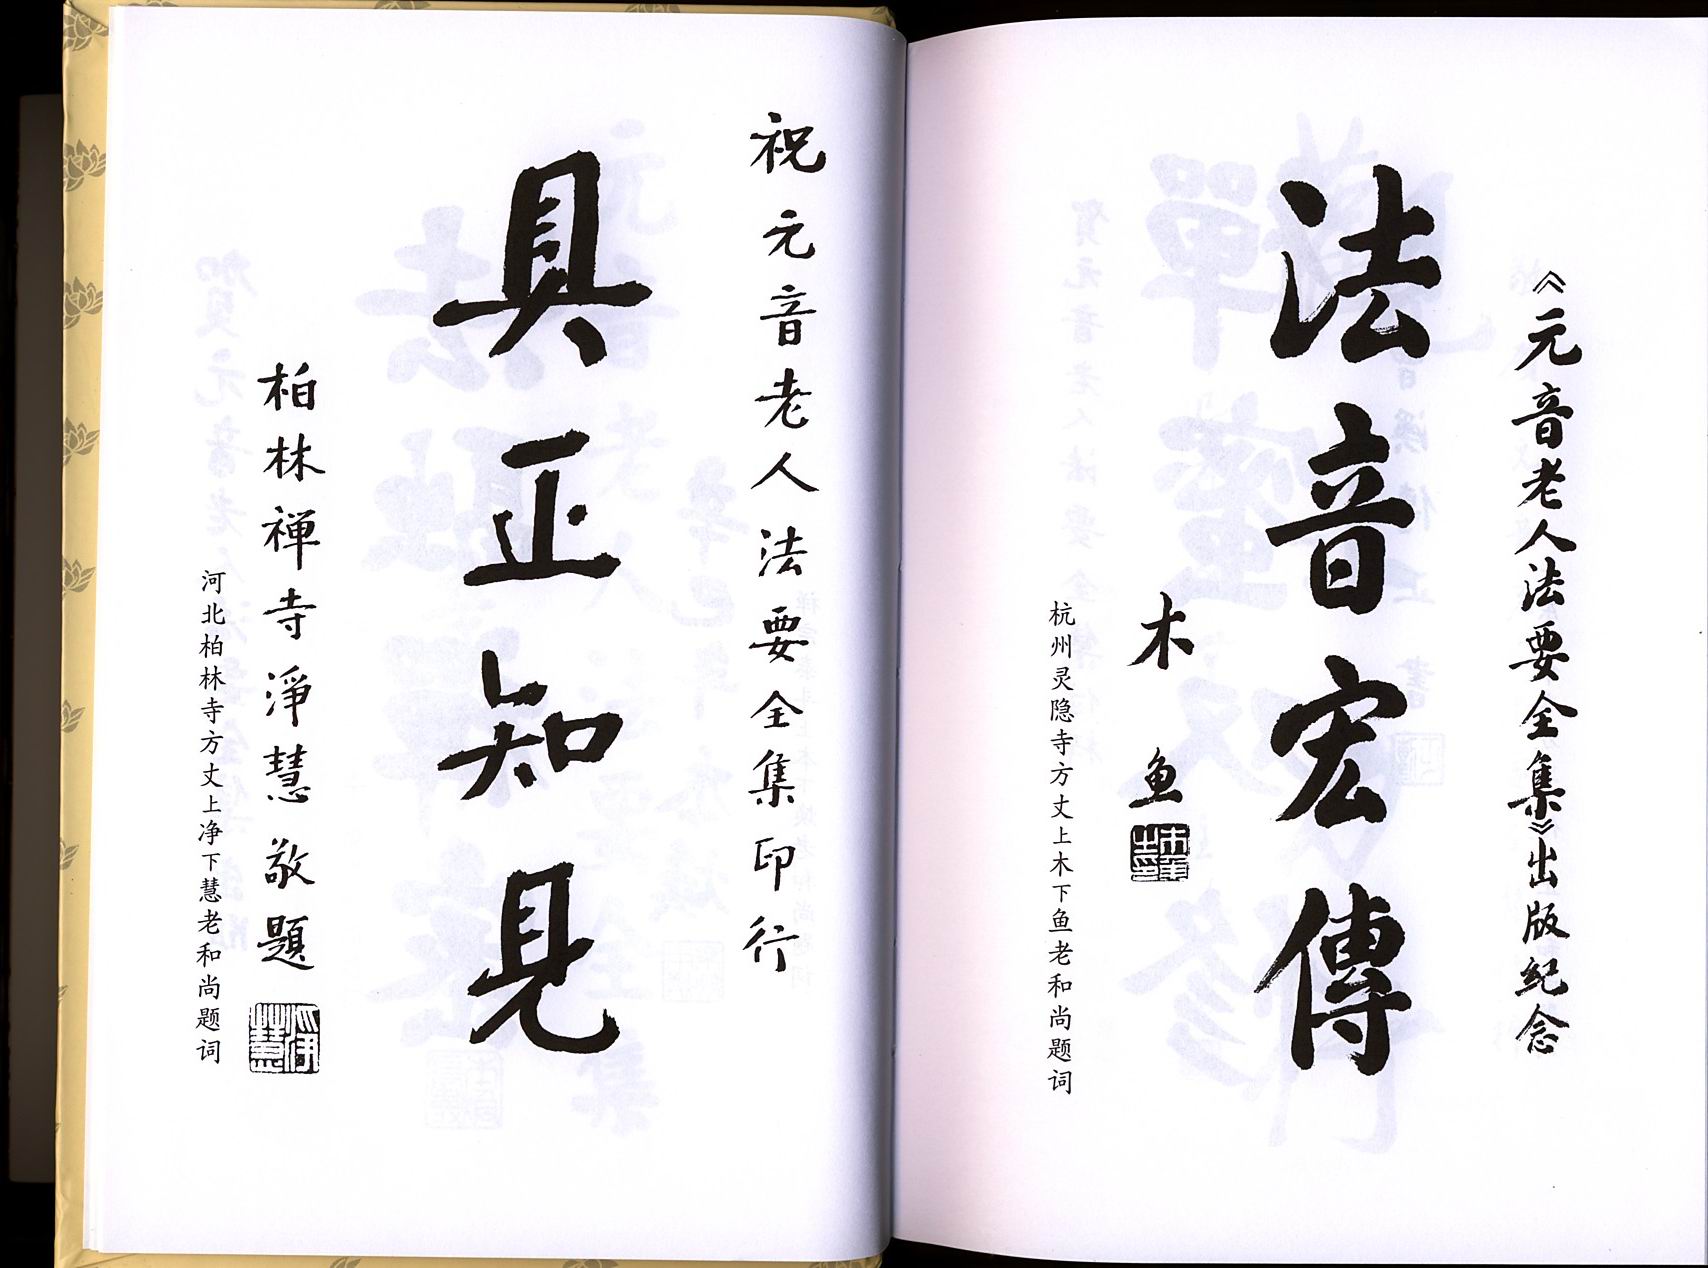 《元音老人法要全集》出版纪念
法音宏傳
木鱼
杭州灵隐寺方丈上木下鱼老和尚题词
祝元音老人法要全集印行
具正知見
柏林禅寺淨慧敬題
净慧
河北柏林寺方丈上净下慧老和尚题词